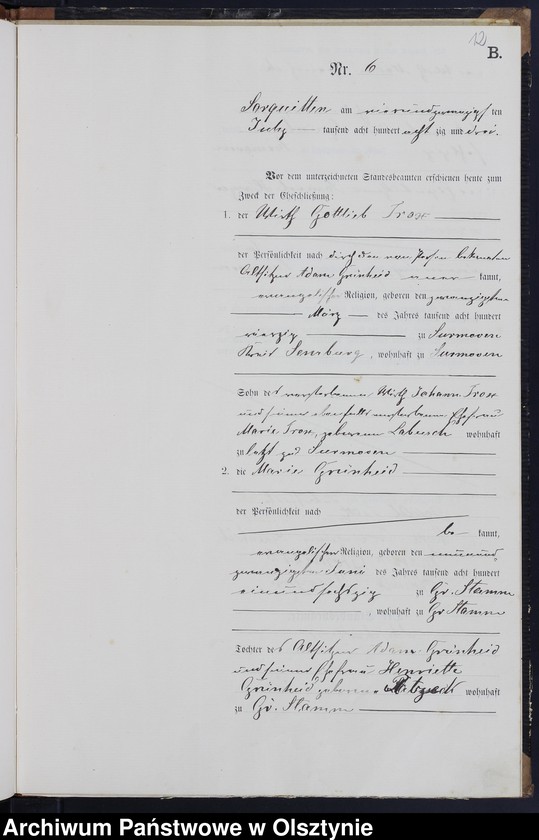 12
B.
Nr. 6
Sorquitten am vierundzwanzigsten
July tausend acht hundert achtzig und drei.
Vor dem unterzeichneten Standesbeamten erschienen heute zum
Zweck der Eheschließung:
1. der Wirth Gottlieb Trox
der Persönlichkeit nach durch den von Person bekannten
Altsitzer Adam Grünheid anerkannt,
evangelischer Religion, geboren den zwanzigsten
März des Jahres tausend acht hundert
vierzig zu Surmowen
Kreis Sensburg, wohnhaft zu Surmowen
Sohn des verstorbenen Wirth Johann Trox
und seiner ebenfalls verstorbenen Ehefrau
Marie Trox, geborenen Labusch wohnhaft
zuletzt zu Surmowen
2. die Marie Grünheid
der Persönlichkeit nach
be kannt,
evangelischer Religion, geboren den neunund
zwanzigsten Juni des Jahres tausend acht hundert
einundsechszig zu Gr. Stamm
, wohnhaft zu Gr Stamm
Tochter des Altsitzer Adam Grünheid
und seiner Ehefrau Henriette
Grünheid geborenen wohnhaft
zu Gr. Stamm
Archiwum Państwowe w Olsztynie